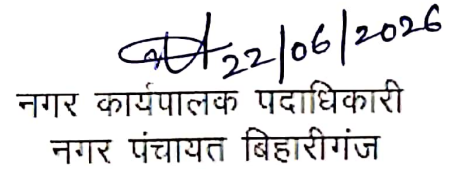 22/06/2026
नगर कार्यपालक पदाधिकारी
नगर पंचायत बिहारीगंज